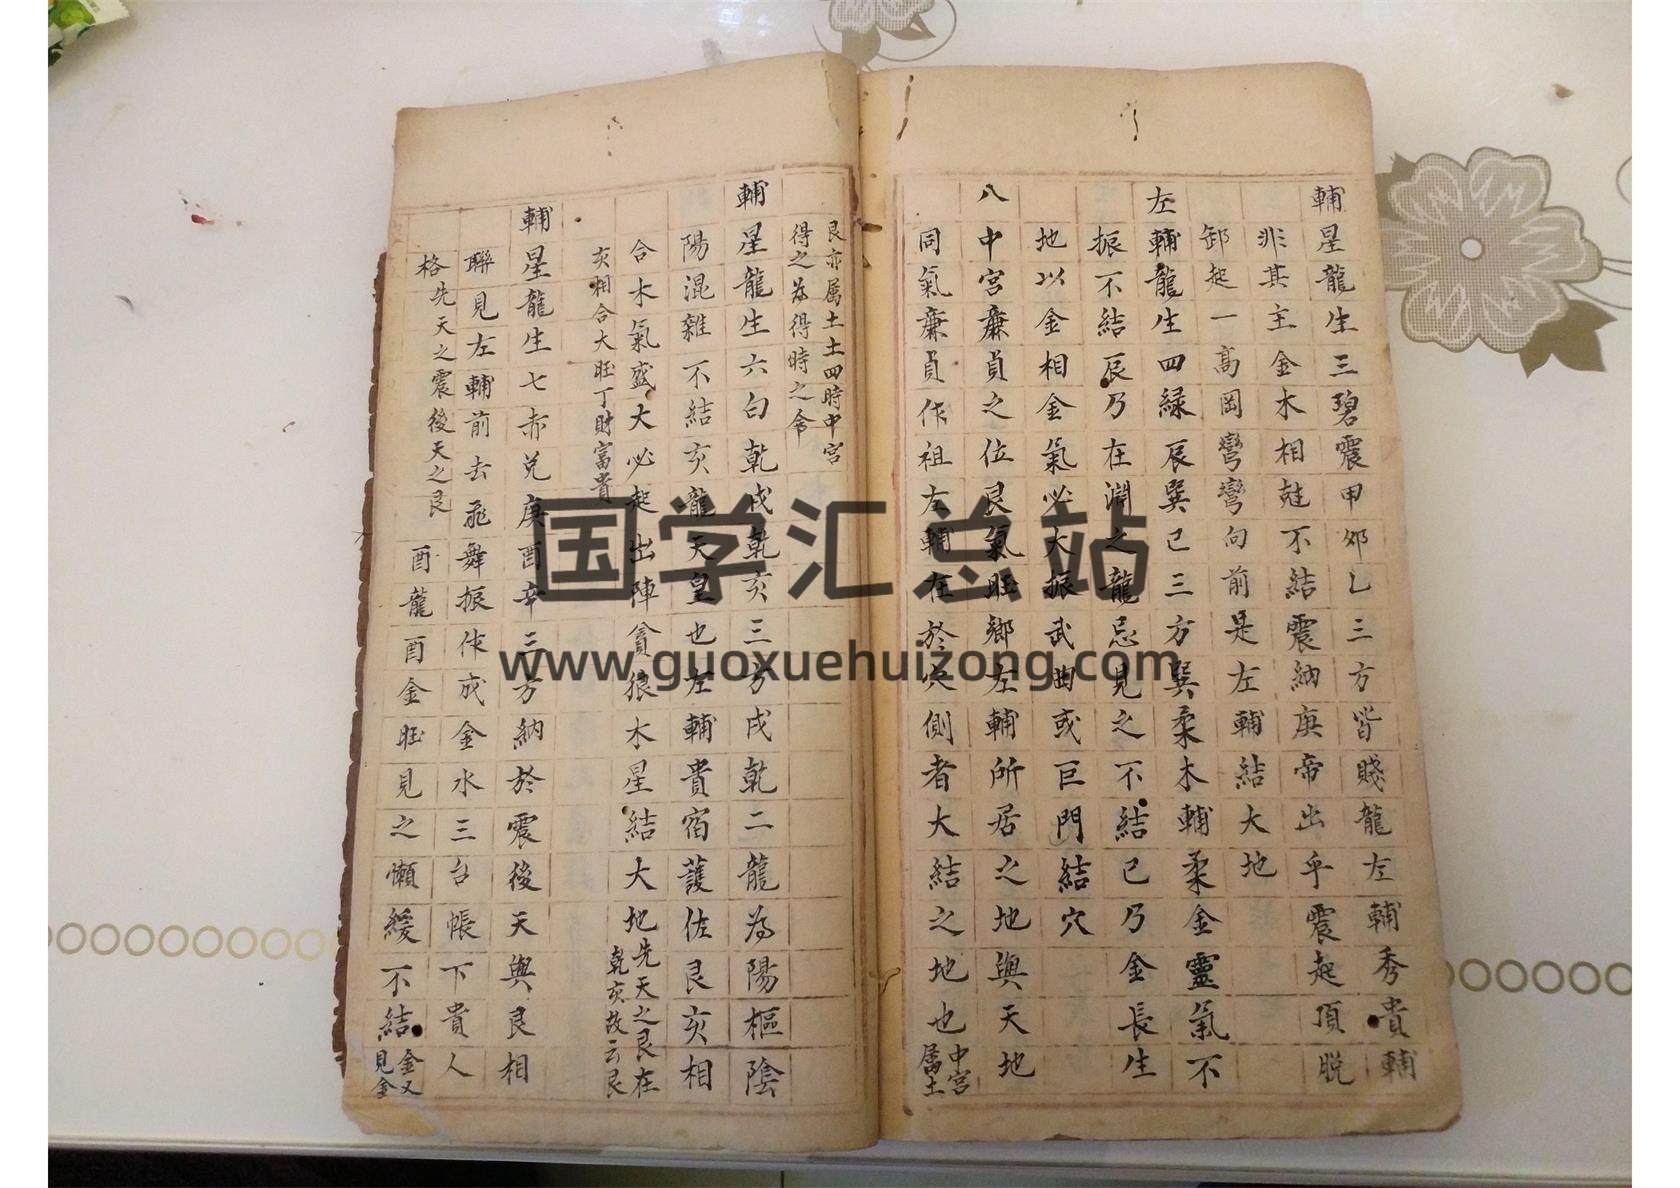 輔星龍生三碧震甲卯乙三方皆賤龍左輔秀貴輔
非其主金木相尅不結震納庚帝出乎震起頂脫
卸起一高岡彎彎向前是左輔結大地
左輔龍生四緑辰巽巳三方巽柔木輔柔金靈氣不
振不結辰乃在淵之龍忌見之不結巳乃金長生
地以金相金氣必大振武曲或巨門結穴
八中宮廉貞之位艮氣旺鄉左輔所居之地與天地
同氣廉貞作祖左輔在於穴側者大結之地也中宮
属土
艮亦属土土四時中宮
得之為得時之令
輔星龍生六白乾戌乾亥三方戌乾二龍為陽樞陰
陽混雜不結亥龍天皇也左輔貴宿護佐艮亥相
合木氣盛大必起出陣貪狼木星結大地先天之艮在
乾亥故云艮
亥相合大旺丁財富貴
輔星龍生七赤兑庚酉辛三方納於震後天與艮相
聯見左輔前去飛舞振作成金水三台帳下貴人
格先天之震後天之艮 酉龍酉金旺見之懶緩不結金又
見金
国学汇总站
www.guoxuehuizong.com